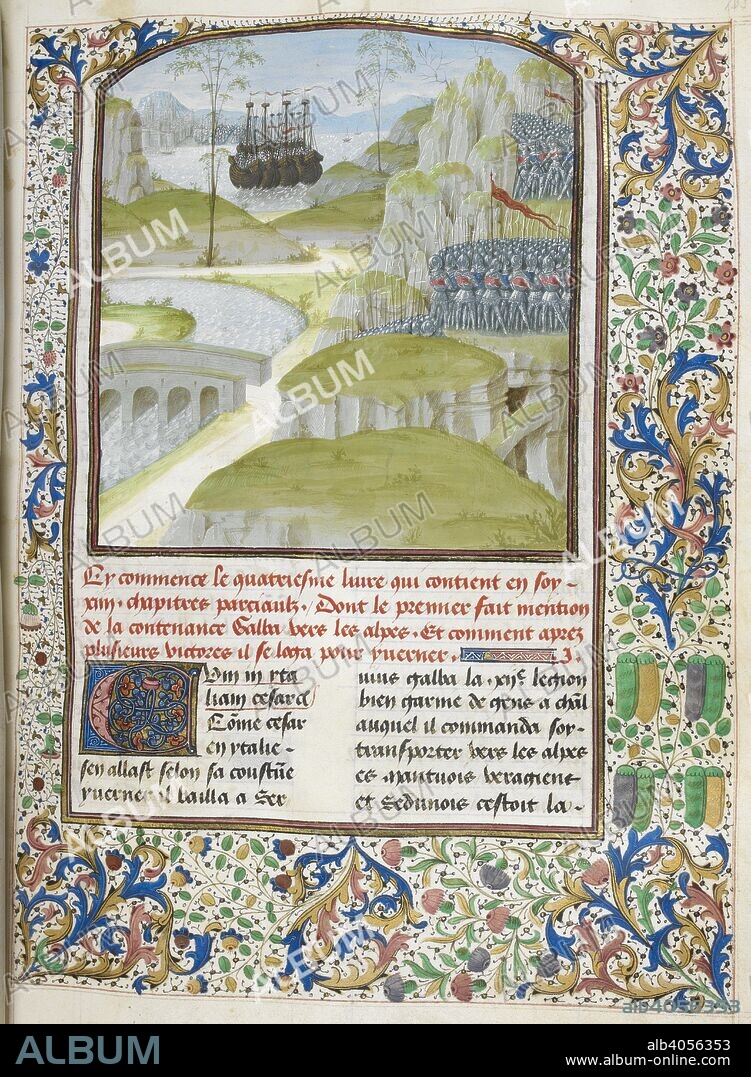 Cy commence le quatriesme livre qui contient en soy -
xiiii. chapitres parciaulz. Dont le premier fait mention
de la contenance Galba vers les alpes. Et comment aprez
plusieurs victores il se loga pour yverner. .I.
Cum in yta
liam cesar
Cōme cesar
en ytalie -
sen allast selon sa coustūe
yverner Il bailla a Ser
uius galba la .xiie. legion
bien garnie de gens a chl̄
auquel il commanda soy -
transporter vers les alpes
es nantuois veragient
et sedunois cestoit la -
alb4056353
ALBUM
Image No. alb4056353
www.album-online.com